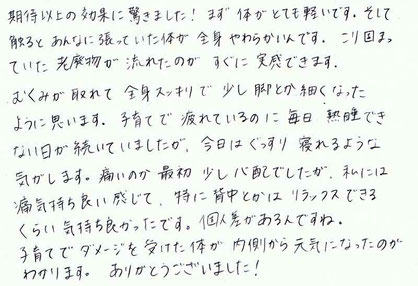 期待以上の効果に驚きました！まず体がとても軽いです。そして
触るとあんなに張っていた体が全身やわらかいんです。こり固まっ
ていた老廃物が流れたのがすぐに実感できます。
むくみが取れて全身スッキリで少し脚とか細くなった
ように思います。子育てで疲れているのに毎日熟睡でき
ない日が続いていましたが、今日はぐっすり寝れるような
気がします。痛いのが最初少し心配でしたが、私には
痛気持ち良い感じて、特に背中とかはリラックスできる
くらい気持ち良かったです。個人差があるんですね。
子育てでダメージを受けた体が内側から元気になったのが
わかります。ありがとうございました！